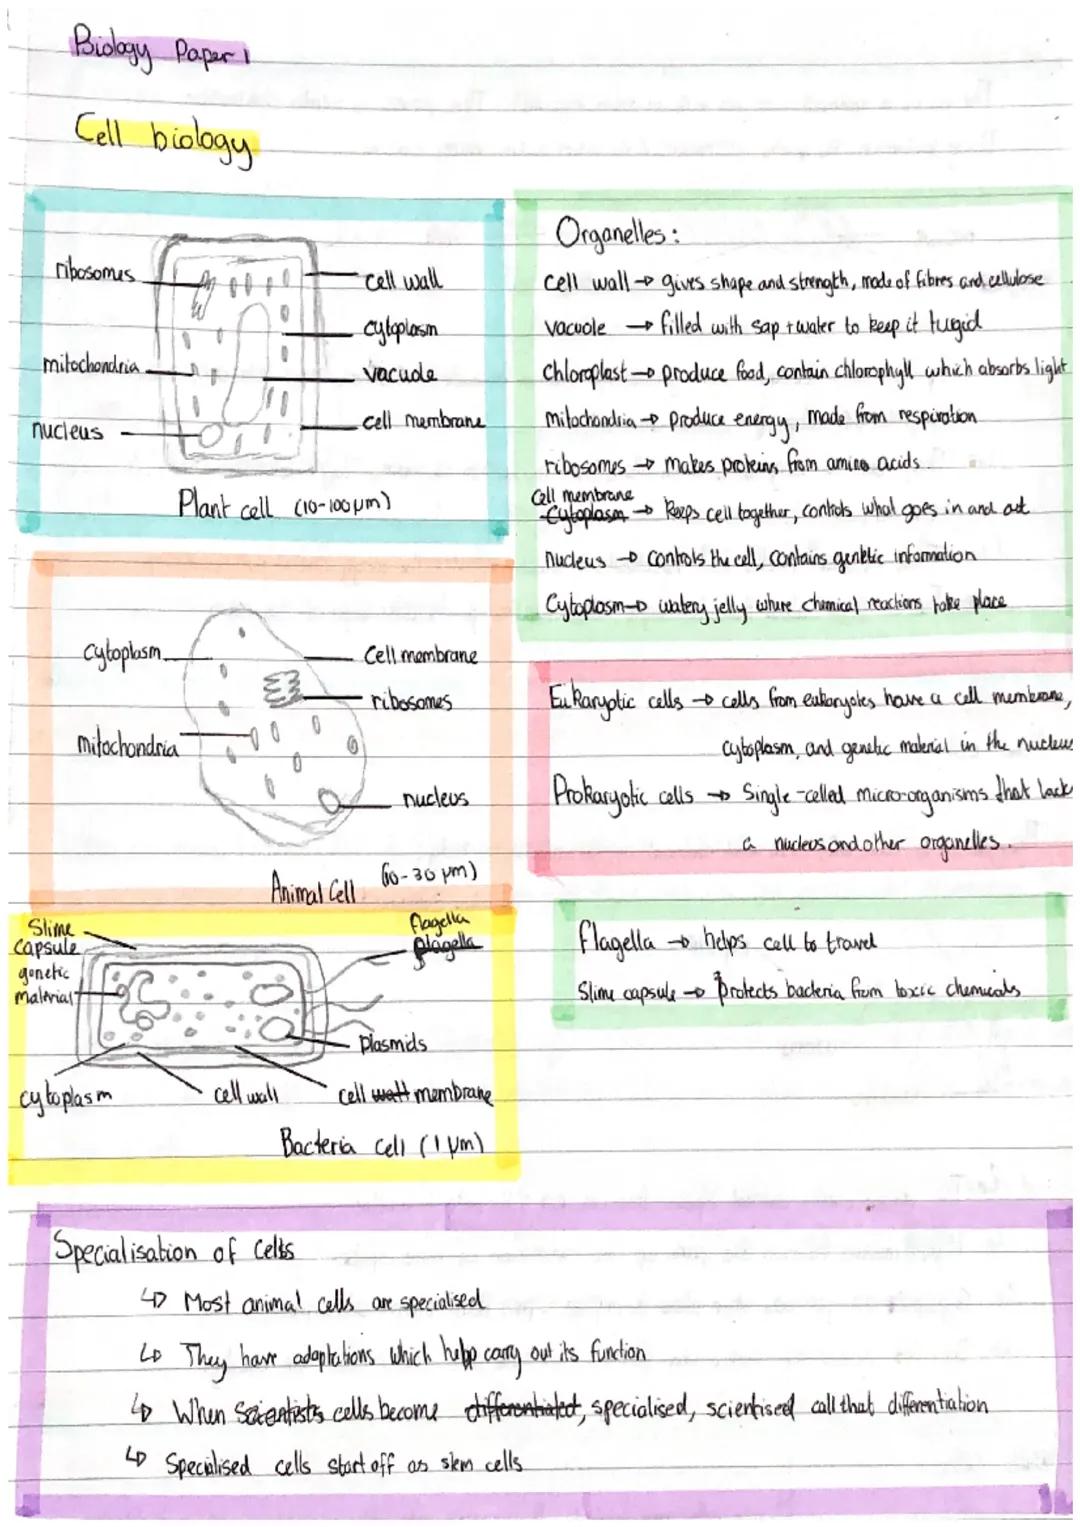 Biology Paper 1
Cell biology
ribosomes
mitochondria
nucleus
cell wall
cytoplasm
vacuole
cell membrane
Plant cell (10-100µm)
Organelles:
cell wall → gives shape and strength, made of fibres and cellulose
vacuole → filled with sap + water to keep it turgid
chloroplast → produce food, contain chlorophyll which absorbs light
mitochondria → produce energy, made from respiration
ribosomes → makes proteins from amino acids.
Cell membrane
Cytoplasm → keeps cell together, controls what goes in and out
nucleus → controls the cell, contains genetic information
Cytoplasm → watery jelly where chemical reactions take place
cytoplasm
mitochondria
Cell membrane
ribosomes
nucleus
Animal Cell (10-30 µm)
Eukaryotic cells → cells from eukaryotes have a cell membrane,
cytoplasm, and genetic material in the nucleus
Prokaryotic cells → Single-celled micro-organisms that lack
a nucleus and other organelles.
Slime
capsule
genetic
material
cytoplasm
cell wall
cell wall membrane
flagella
plagella
plasmids
Bacteria cell (1 µm)
flagella → helps cell to travel
Slime capsule → protects bacteria from toxic chemicals
Specialisation of cells
↳ Most animal cells are specialised
↳ They have adaptations which help carry out its function
↳ When scientists cells become differentiated, specialised, scientised call that differentiation
↳ Specialised cells start off as stem cells